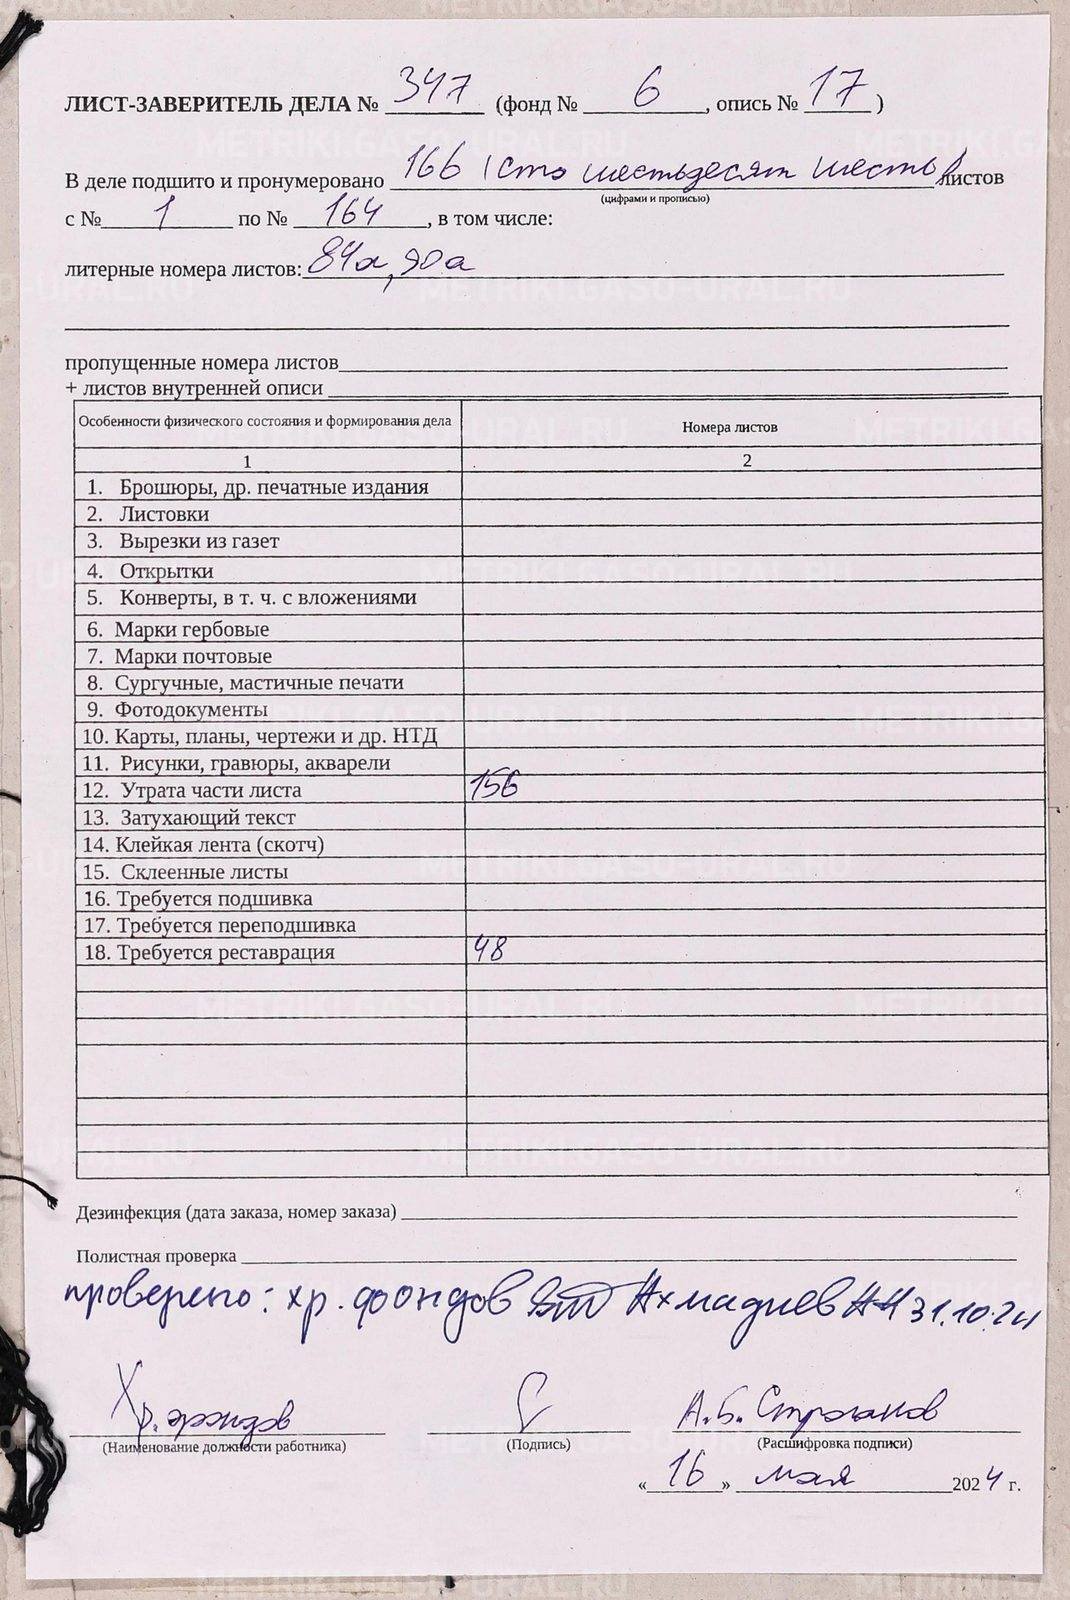 ЛИСТ-ЗАВЕРИТЕЛЬ ДЕЛА № 347 (фонд № 6, опись № 17)
В деле подшито и пронумеровано 166 (сто шестьдесят шесть) листов
(цифрами и прописью)
с № 1 по № 164, в том числе:
литерные номера листов: 84а, 90а
пропущенные номера листов
+ листов внутренней описи
Особенности физического состояния и формирования дела Номера листов
1 2
1. Брошюры, др. печатные издания
2. Листовки
3. Вырезки из газет
4. Открытки
5. Конверты, в т. ч. с вложениями
6. Марки гербовые
7. Марки почтовые
8. Сургучные, мастичные печати
9. Фотодокументы
10. Карты, планы, чертежи и др. НТД
11. Рисунки, гравюры, акварели
12. Утрата части листа 156
13. Затухающий текст
14. Клейкая лента (скотч)
15. Склеенные листы
16. Требуется подшивка
17. Требуется переподшивка
18. Требуется реставрация 48
Дезинфекция (дата заказа, номер заказа)
Полистная проверка
проверено: хр. фондов Ахмадиев 31.10.24
Хр. фондов А.Б. Строганов
(Наименование должности работника) (Подпись) (Расшифровка подписи)
«16» мая 2024 г.
METRIKI.GASO-URAL.RU